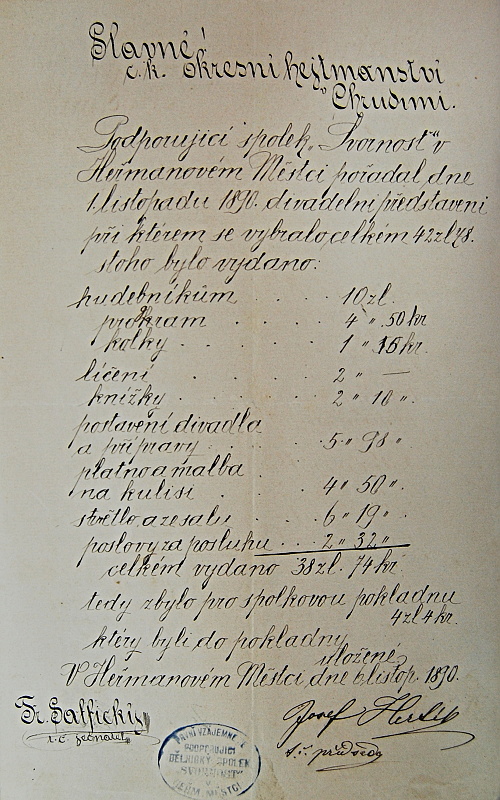 Slavné!
c.k. okresní hejtmanství
v Chrudimi.
Podporující spolek „Svornost“ v
Heřmanovém Městci pořádal dne
1. listopadu 1890. divadelní představení
při kterém se vybralo celkém 42 zl 78.
stoho bylo vydáno:
hudebníkům . . . . 10 zl.
prográm . . . . 4 „ 50 kr
kolky . . . . 1 „ 15 kr.
líčení . . . . 2 „ —
knížky . . . . 2 „ 10 „.
postavení divadla
a přípravy . . . . 5 „ 98 „.
plátno a malba
na kulisi . . . . 4 „ 50 „.
světlo a ze salu . . . 6 „ 19 „.
poslovy za posluhu . . . 2 „ 32 „
celkém vydáno 38 zl. 74 kr.
tedy zbylo pro spolkovou pokladnu
4 zl 4 kr.
který byli do pokladny
uložené,
V Heřmanovém Městci, dne 6 listop. 1890.
Fr.
t. č. jednatel
Josef
t. č. předseda
PRVNÍ VZÁJEMNĚ
PODPORUJÍCÍ
DĚLNICKÝ SPOLEK
„SVORNOST“
V
HEŘM. MĚSTCI